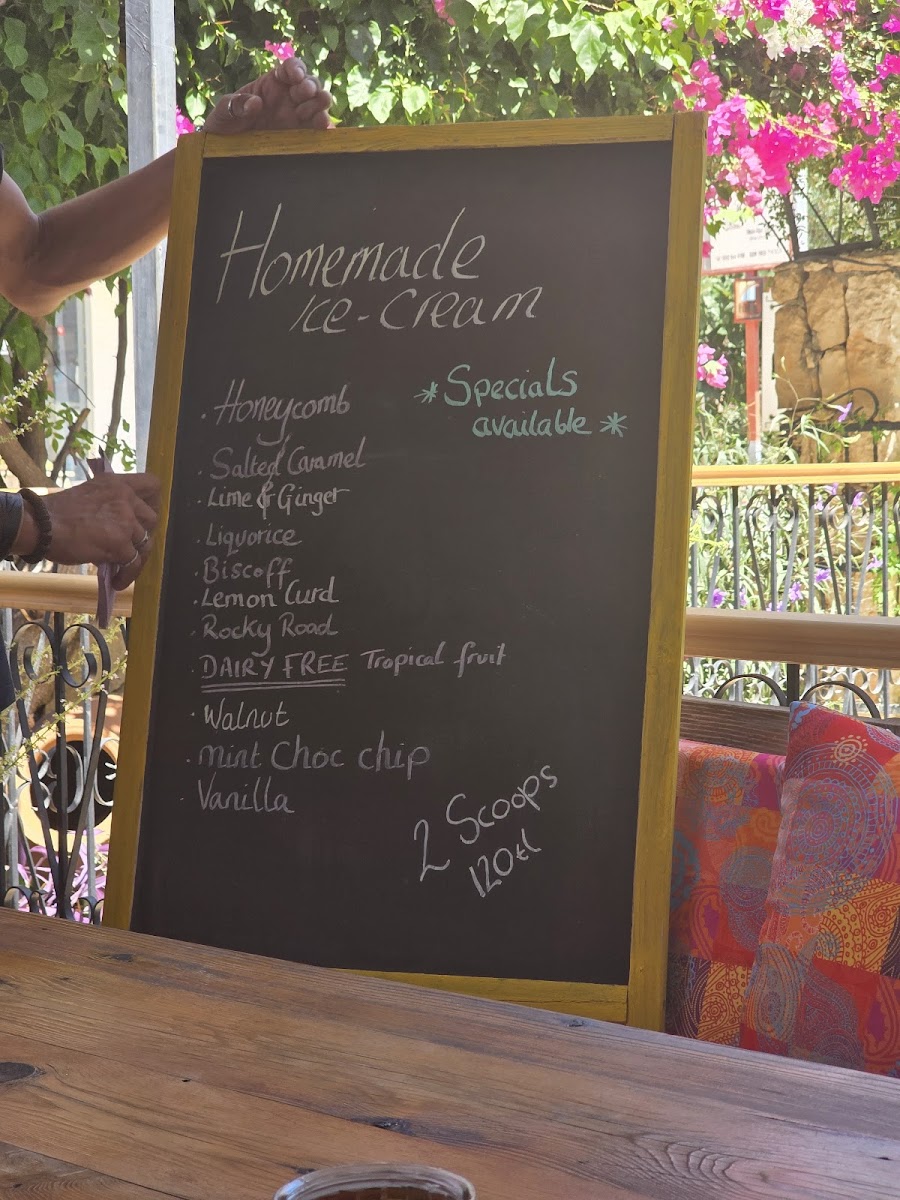 Homemade
Ice-Cream
*Specials
available *
• Honeycomb
• Salted Caramel
• Lime & Ginger
• Liquorice
• Biscoff
• Lemon Curd
• Rocky Road
• DAIRY FREE Tropical fruit
• Walnut
• mint Choc chip
• Vanilla
2 Scoops
120tl